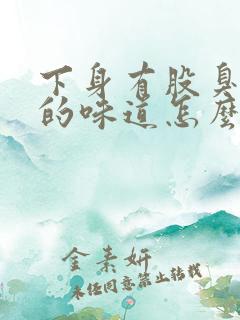 下身有股臭
的味道怎么
金素妍
未经同意禁止转载